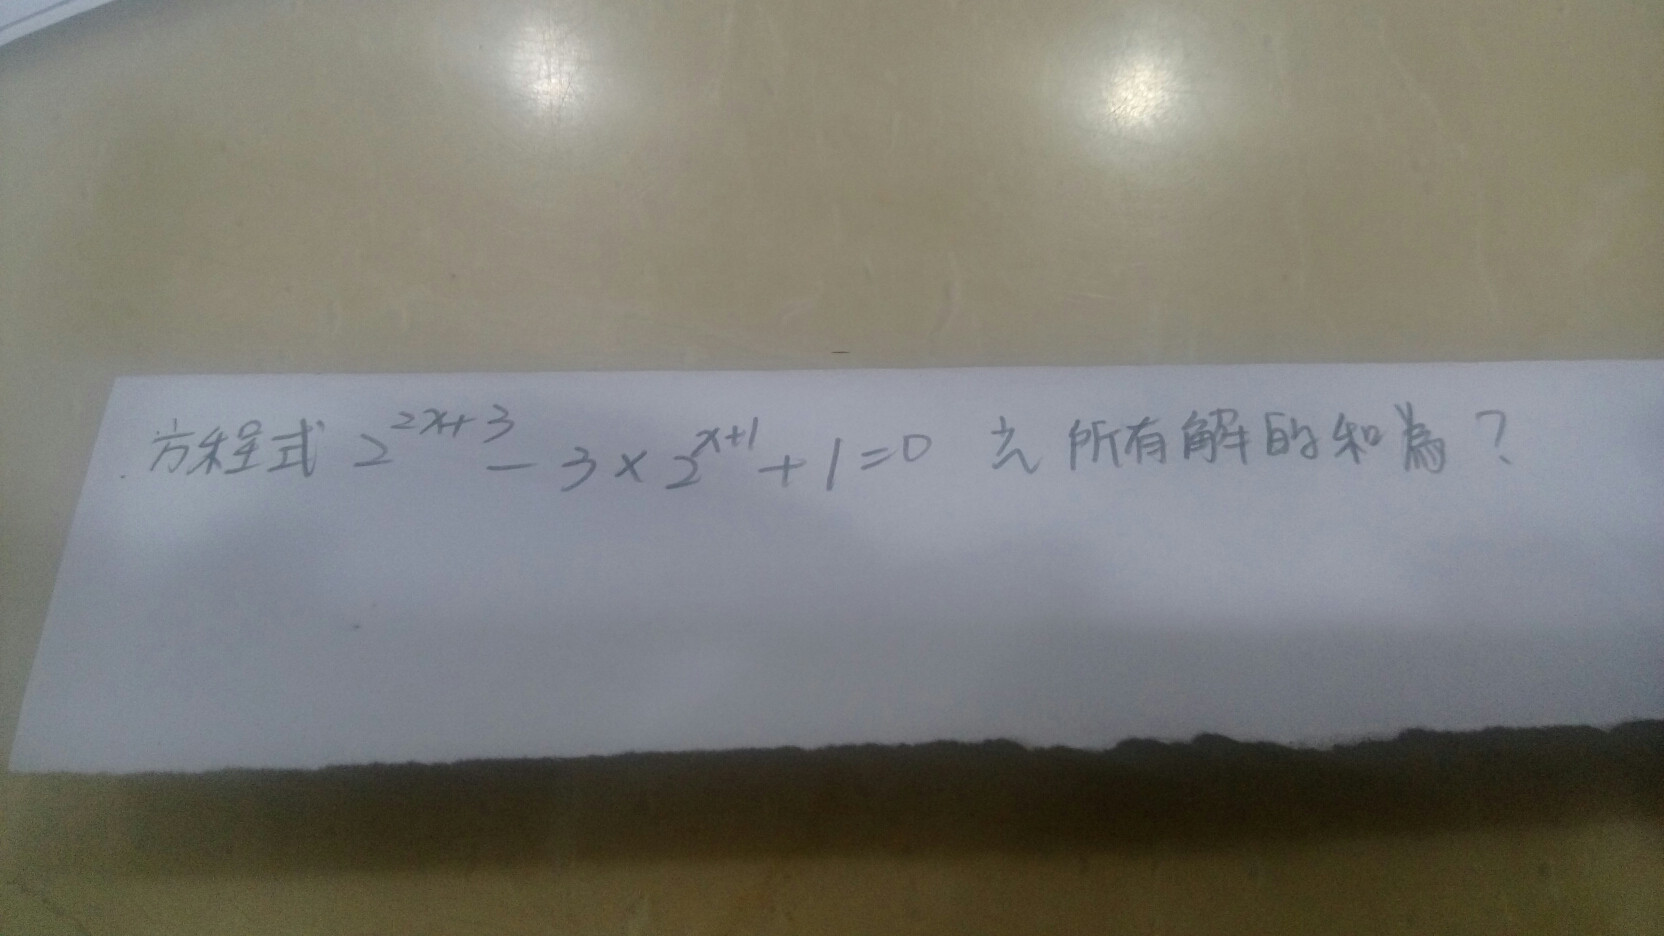 方程式 2^{2x+3} - 3 × 2^{x+1} + 1 = 0 之所有解的和為？